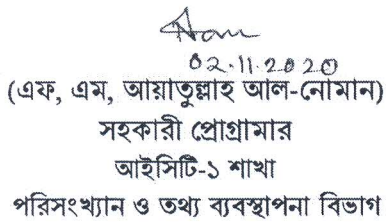 02.11.2020
(এফ, এম, আয়াতুল্লাহ আল-নোমান)
সহকারী প্রোগ্রামার
আইসিটি-১ শাখা
পরিসংখ্যান ও তথ্য ব্যবস্থাপনা বিভাগ